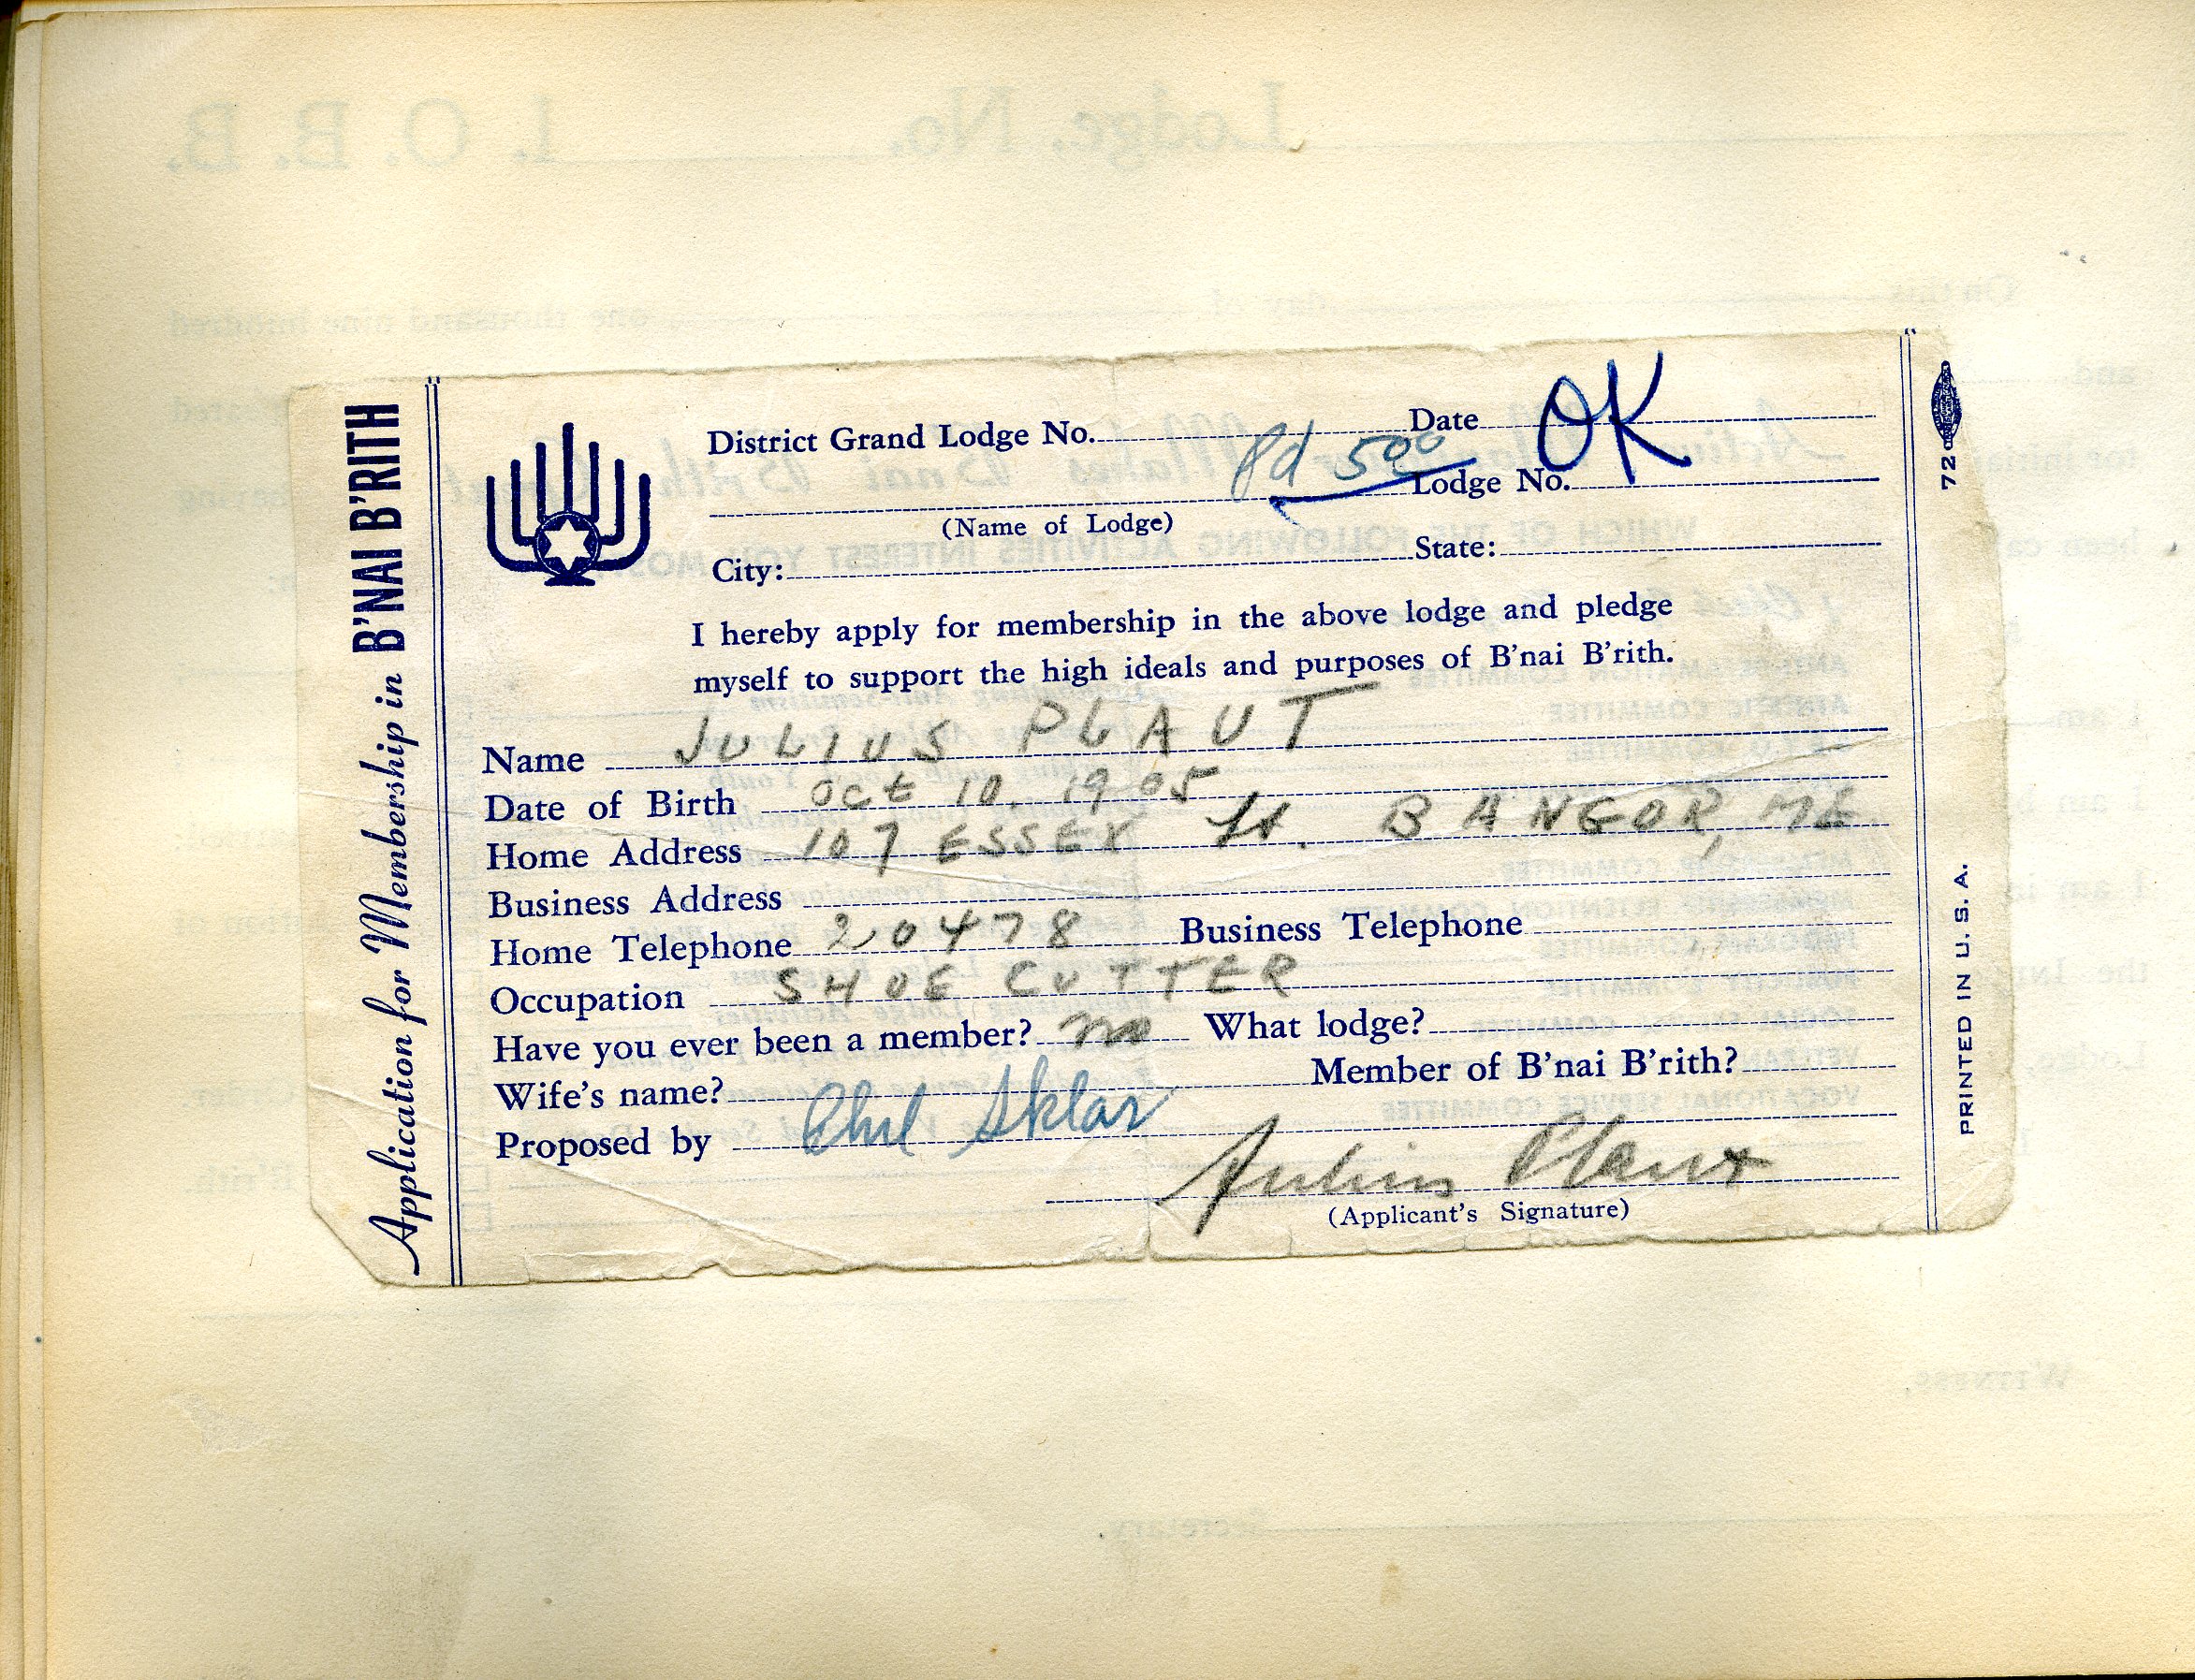 Application for Membership in B'NAI B'RITH
District Grand Lodge No. Date OK
Pd 5.00
Lodge No.
(Name of Lodge)
City: State:
I hereby apply for membership in the above lodge and pledge
myself to support the high ideals and purposes of B'nai B'rith.
Name JULIUS PLAUT
Date of Birth Oct 10. 1905
Home Address 107 ESSEX St. BANGOR, ME
Business Address
Home Telephone 20478 Business Telephone
Occupation SHOE CUTTER
Have you ever been a member? no What lodge?
Wife's name? Member of B'nai B'rith?
Proposed by Phil Sklar
Julius Plaut
(Applicant's Signature)
720
PRINTED IN U. S. A.